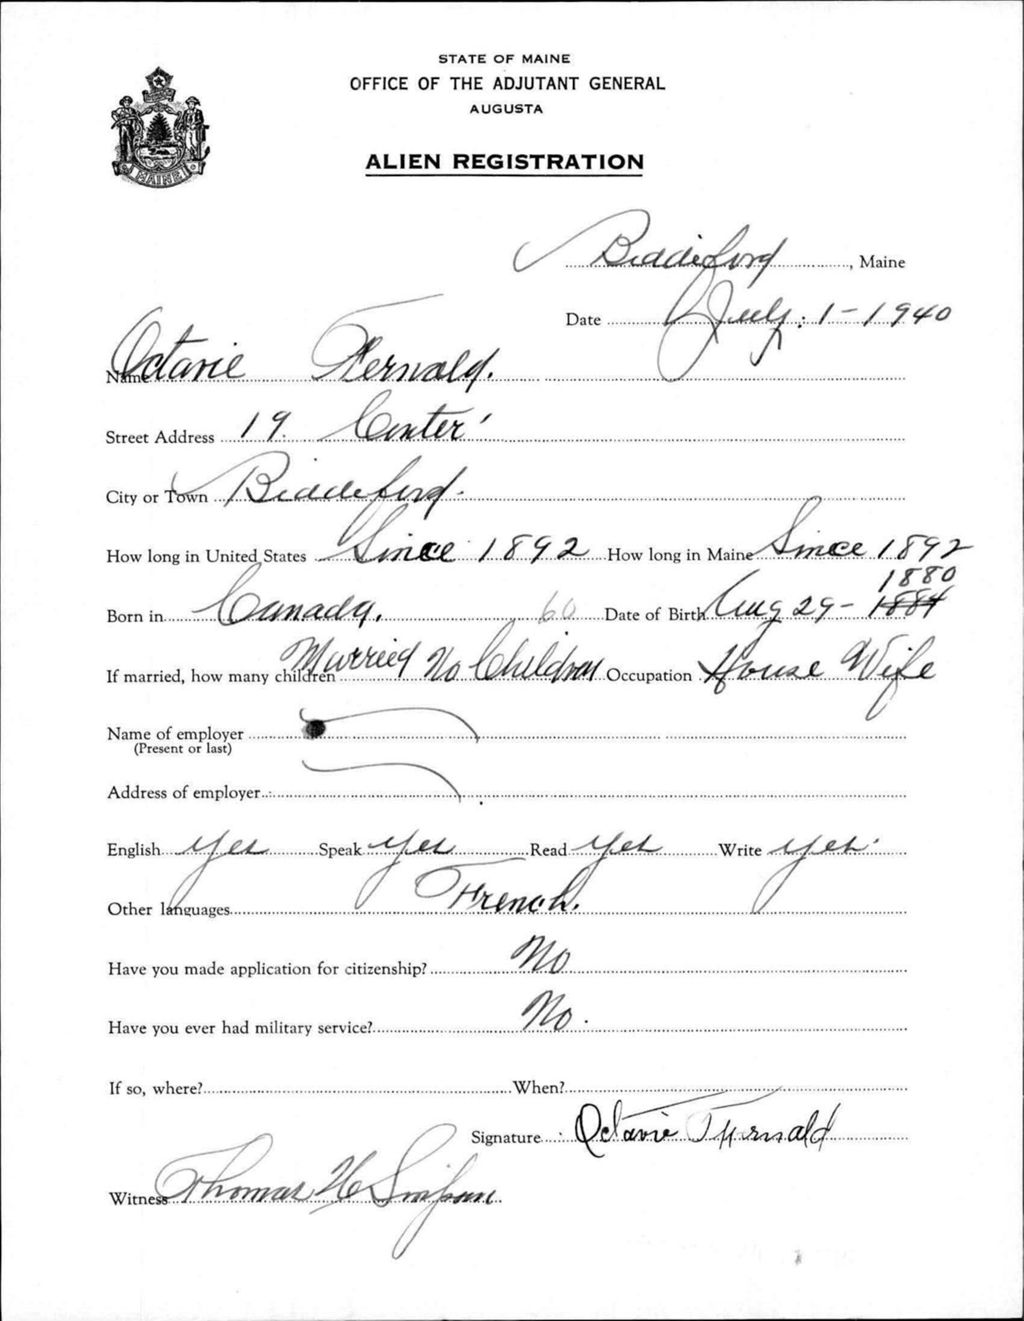 STATE OF MAINE
OFFICE OF THE ADJUTANT GENERAL
AUGUSTA
ALIEN REGISTRATION
MAINE
Biddeford, Maine
Date July. 1-1940
Name Octavie Fernald.
Street Address 19. Center
City or Town Biddeford.
How long in United States Since 1892 How long in Maine Since 1892
1880
Born in Canada. 60 Date of Birth Aug 29- 1884
If married, how many children Married No Children Occupation House Wife
Name of employer
(Present or last)
Address of employer
English yes Speak yes Read yes Write yes.
Other languages French.
Have you made application for citizenship? No
Have you ever had military service? No.
If so, where? When?
Signature Octavie Fernald
Witness Thomas H Simpson